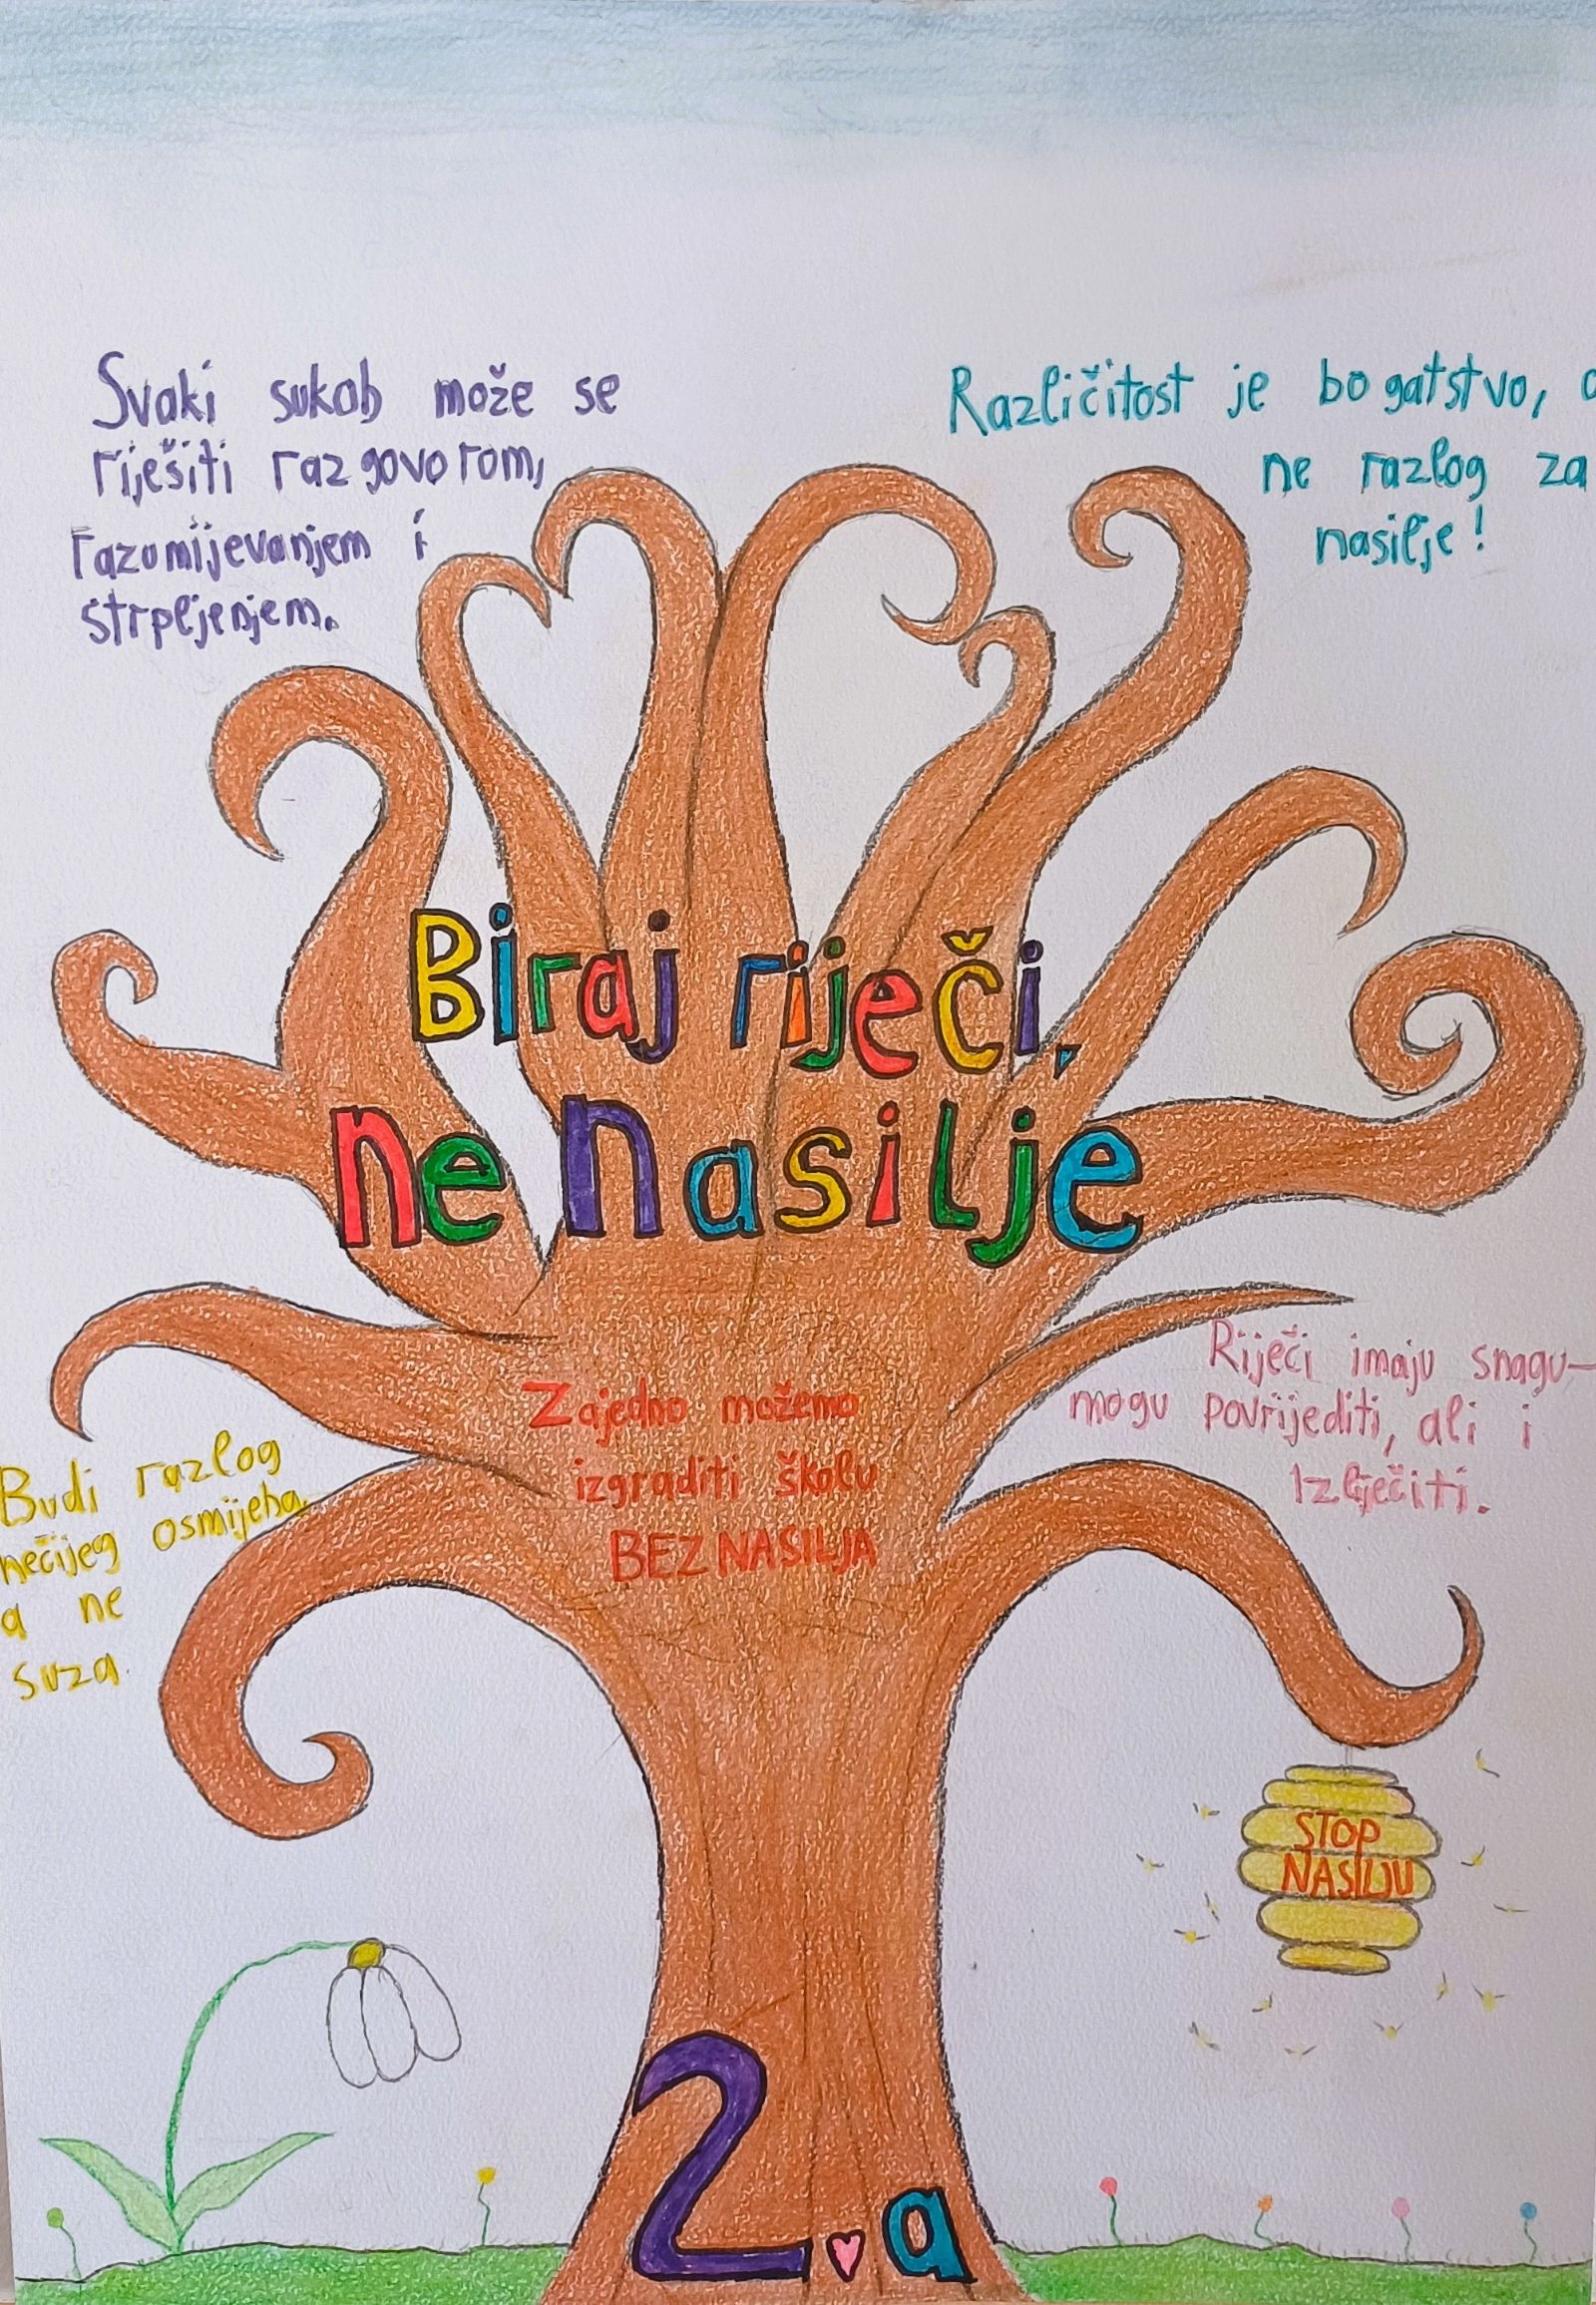 Svaki sukob može se
riješiti razgovorom,
razumijevanjem i
strpljenjem.
Različitost je bogatstvo, a
ne razlog za
nasilje!
Biraj riječi,
ne nasilje
Zajedno možemo
izgraditi školu
BEZ NASILJA
Riječi imaju snagu-
mogu povrijediti, ali i
izliječiti.
Budi razlog
nečijeg osmijeha,
a ne
suza.
STOP
NASILJU
2.a